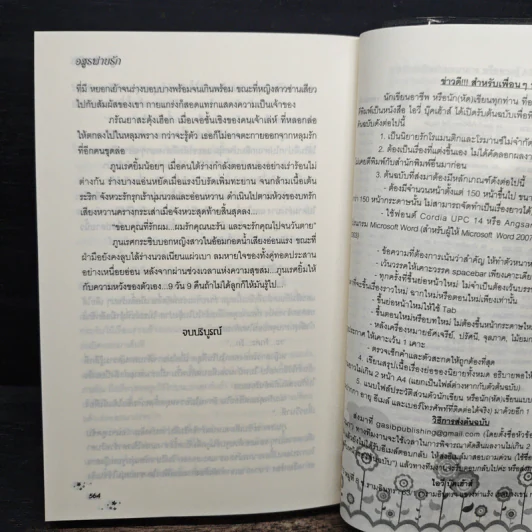 อสูรพ่ายรัก
ที่มี หยอกเย้าจนร่างบอบบางพร้อมจนเกินพร้อม ขณะที่หญิงสาวซ่านเสียว
ไปกับสัมผัสของเขา กายแกร่งก็สอดแทรกแสดงความเป็นเจ้าของ
ภรัณยาสะดุ้งเฮือก เมื่อจอมเอาชั้นเชิงของคนเจ้าเล่ห์ ที่หลอกล่อ
ให้ตกลงไปในหลุมพราง กว่าจะรู้ตัว เธอก็ไม่อาจตะกายออกจากหลุมรัก
ที่อีกคนขุดล่อ
ภูนเรศยิ้มน้อยๆ เมื่อคนใต้ร่างกำลังตอบสนองอย่างเร่าร้อนไม่
ต่างกัน ร่างบางแอ่นหยัดเมื่อแรงบีบรัดเพิ่มทะยาน จนกล้ามเนื้อเต้น
ระริก จังหวะรักรุกเร้านุ่มนวลและอ่อนหวาน ดำเนินไปตามห้วงของบทรัก
เสียงหวานครางกระเส่าเมื่อจังหวะสุดท้ายสิ้นสุดลง
"ขอบคุณที่รักผม...ผมรักคุณนะรัน และจะรักคุณไปจนวันตาย"
ภูนเรศกระซิบบอกหญิงสาวในอ้อมกอดน้ำเสียงอ่อนแรง ขณะที่
ฝ่ามือยังคงลูบไล้ร่างนวลเนียนแผ่วเบา ลมหายใจของทั้งคู่ทอดประสาน
อย่างเหนื่อยอ่อน หลังจากผ่านช่วงเวลาแห่งความสุขสม...ภูนเรศยิ้มให้
กับความหวังของตัวเอง...9 วัน 9 คืนถ้าไม่ได้ลูกก็ให้มันรู้ไป...
จบบริบูรณ์
564
ข่าวดี!!! สำหรับเพื่อน ๆ
นักเขียนอาชีพ หรือนัก(หัด)เขียนทุกท่าน ที่
พิมพ์เป็นหนังสือ ไอวี่ บุ๊คเฮ้าส์ ได้เปิดรับต้นฉบับเพื่อ
ดังต่อไปนี้
1. เป็นนิยายรักโรแมนติกและโรมานซ์ไม่จำกัด
2. ต้องเป็นเรื่องที่แต่งขึ้นเอง ไม่ได้คัดลอกผลงาน
เคยตีพิมพ์กับสำนักพิมพ์อื่นมาก่อน
3. ต้นฉบับที่ส่งมาต้องมีหลักเกณฑ์ดังต่อไปนี้
- ต้องมีจำนวนหน้าตั้งแต่ 150 หน้าขึ้นไป
150 หน้ากระดาษนั้น ไม่สามารถจัดทำเป็นเรื่องยาวได้
- ใช้ฟอนต์ Cordia UPC 14 หรือ Angsana
Microsoft Word (สำหรับผู้ใช้ Microsoft Word 2007
- ข้อความที่ต้องการเน้นว่าสำคัญ ให้ทำตัวหนา
- เว้นวรรคให้เคาะวรรค spacebar เพียงเคาะเดียว
- ทุกครั้งที่ขึ้นย่อหน้าใหม่ ไม่จำเป็นต้องเว้นบรรทัด
- ขึ้นย่อหน้าใหม่ให้ใช้ Tab
- ขึ้นตอนใหม่หรือบทใหม่ ไม่ต้องขึ้นหน้ากระดาษใหม่
- หลังเครื่องหมายอัศเจรีย์, ปรัศนี, จุลภาค, ไม้ยมก
ให้เคาะเว้น 1 เคาะ
- ตรวจเช็กคำและตัวสะกดให้ถูกต้องที่สุด
4. เขียนสรุปเนื้อเรื่องย่อของนิยายทั้งหมด
ไม่เกิน 2 หน้า A4 (แยกเป็นไฟล์ต่างหากกับตัวต้นฉบับ)
5. แนบไฟล์ประวัติส่วนตัวนักเขียน หรือนัก(หัด)เขียน
อายุ อีเมล์ และเบอร์โทรศัพท์ที่ติดต่อได้จริง) มาด้วยอีก 1
วิธีการส่งต้นฉบับ
ส่งมาที่ gasibpublishing@gmail.com
ไอวี่ บุ๊คเฮ้าส์